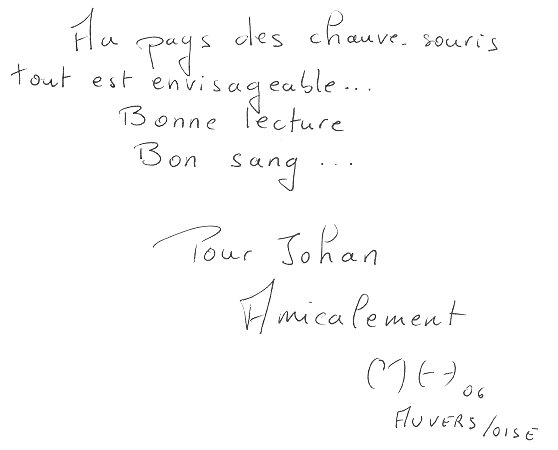 Au pays des chauve-souris
tout est envisageable...
Bonne lecture
Bon sang ...
Pour Johan
Amicalement
06
AUVERS/OISE